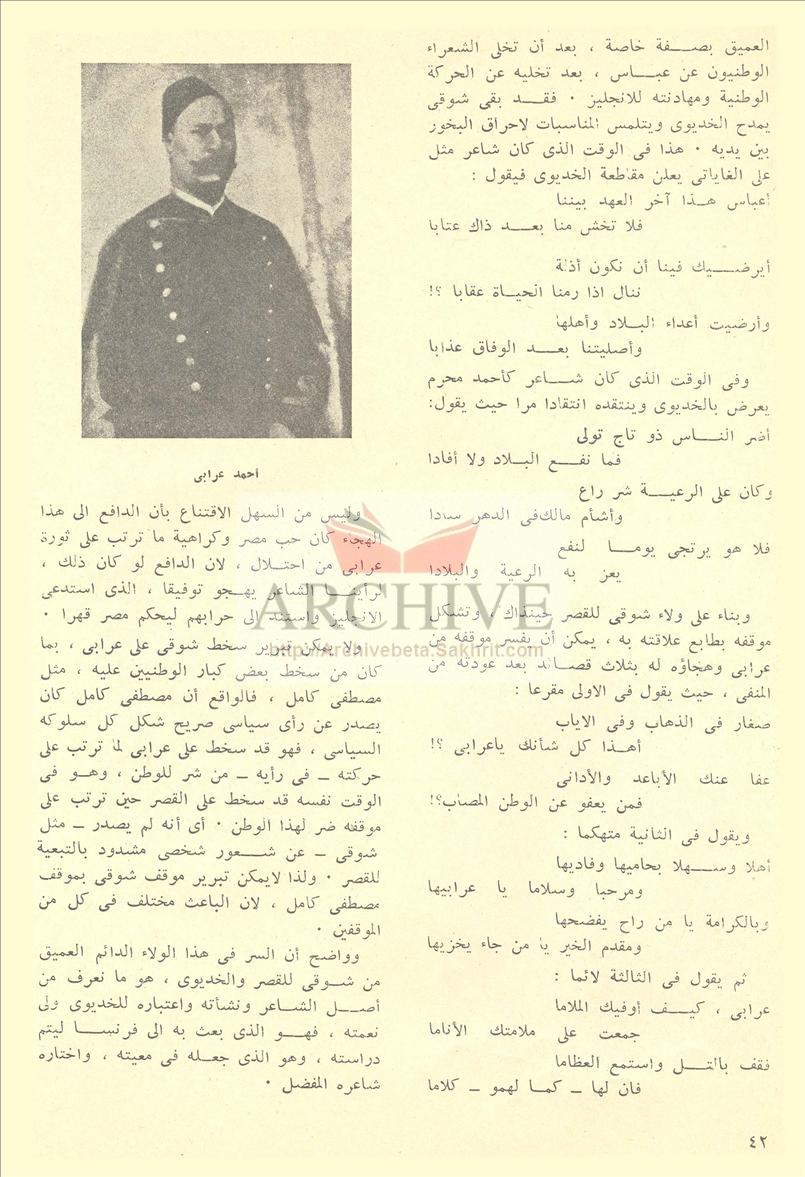 العميق بصفة خاصة ، بعد أن تخلى الشعراء
الوطنيون عن عباس ، بعد تخليه عن الحركة
الوطنية ومهادنته للانجليز . فقد بقى شوقى
يمدح الخديوى ويتلمس المناسبات لاحراق البخور
بين يديه . هذا فى الوقت الذى كان شاعر مثل
على الغاياتى يعلن مقاطعة الخديوى فيقول :
أعباس هذا آخر العهد بيننا
فلا تخش منا بعد ذاك عتابا
أيرضيك فينا أن نكون أذلة
ننال اذا رمنا الحياة عقابا ؟!
وأرضيت أعداء البلاد وأهلها
وأصليتنا بعد الوفاق عذابا
وفى الوقت الذى كان شاعر كأحمد محرم
يعرض بالخديوى وينتقده انتقادا مرا حيث يقول:
أضر الناس ذو تاج تولى
فما نفع البلاد ولا أفادا
وكان على الرعية شر راع
وأشأم مالك فى الدهر سادا
فلا هو يرتجى يوما لنفع
يعز به الرعية والبلادا
وبناء على ولاء شوقى للقصر حينذاك ، وتشكل
موقفه بطابع علاقته به ، يمكن أن يفسر موقفه من
عرابى وهجاؤه له بثلاث قصائد بعد عودته من
المنفى ، حيث يقول فى الاولى مقرعا :
صغار فى الذهاب وفى الاياب
أهذا كل شأنك ياعرابى ؟!
عفا عنك الأباعد والأدانى
فمن يعفو عن الوطن المصاب؟!
ويقول فى الثانية متهكما :
أهلا وسهلا بحاميها وفاديها
ومرحبا وسلاما يا عرابيها
وبالكرامة يا من راح يفضحها
ومقدم الخير يا من جاء يخزيها
ثم يقول فى الثالثة لائما :
عرابى ، كيف أوفيك الملاما
جمعت على ملامتك الأناما
فقف بالتل واستمع العظاما
فان لها – كما لهمو – كلاما
أحمد عرابى
وليس من السهل الاقتناع بأن الدافع الى هذا
الهجاء كان حب مصر وكراهية ما ترتب على ثورة
عرابى من احتلال ، لان الدافع لو كان ذلك ،
لرأينا الشاعر يهجو توفيقا ، الذى استدعى
الانجليز واستند الى حرابهم ليحكم مصر قهرا .
ولا يمكن تبرير سخط شوقى على عرابى ، بما
كان من سخط بعض كبار الوطنيين عليه ، مثل
مصطفى كامل ، فالواقع أن مصطفى كامل كان
يصدر عن رأى سياسى صريح شكل كل سلوكه
السياسى ، فهو قد سخط على عرابى لما ترتب على
حركته – فى رأيه – من شر للوطن ، وهو فى
الوقت نفسه قد سخط على القصر حين ترتب على
موقفه ضر لهذا الوطن . أى أنه لم يصدر – مثل
شوقى – عن شعور شخصى مشدود بالتبعية
للقصر . ولذا لايمكن تبرير موقف شوقى بموقف
مصطفى كامل ، لان الباعث مختلف فى كل من
الموقفين .
وواضح أن السر فى هذا الولاء الدائم العميق
من شوقى للقصر والخديوى ، هو ما نعرف من
أصل الشاعر ونشأته واعتباره للخديوى ولى
نعمته ، فهو الذى بعث به الى فرنسا ليتم
دراسته ، وهو الذى جعله فى معيته ، واختاره
شاعره المفضل .
ARCHIVE
http://Archivebeta.Sakhrit.com
٤٢